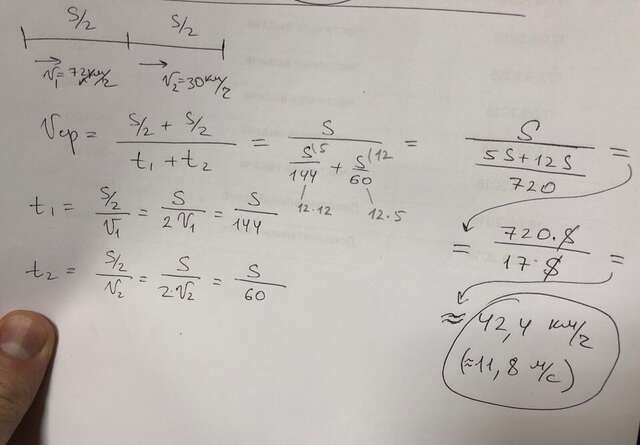 S/2 S/2
V₁=72км/ч V₂=30км/ч
Vср = (S/2 + S/2)/(t₁ + t₂) = S/(S\5/144 + S(12/60) = S/((5S+12S)/720) =
12·12 12·5
t₁ = (S/2)/V₁ = S/(2V₁) = S/144
= (720·S)/(17·S) =
t₂ = (S/2)/V₂ = S/(2·V₂) = S/60
≈ 42,4 км/ч
(≈11,8 м/с)